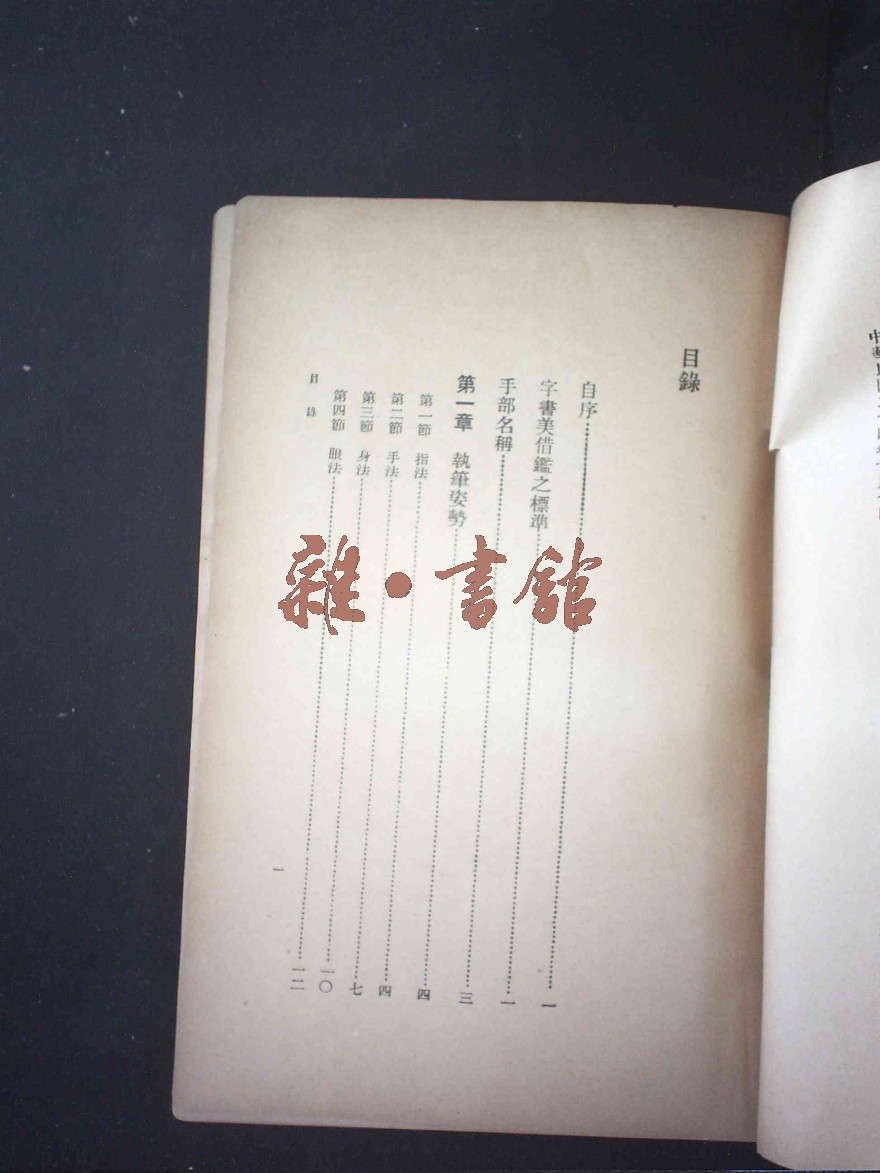 目錄
自序……一
字書美借鑑之標準……一
手部名稱……三
第一章 執筆姿勢……四
第一節 指法……四
第二節 手法……七
第三節 身法……一〇
第四節 眼法……一二
目錄
一
雜·書館